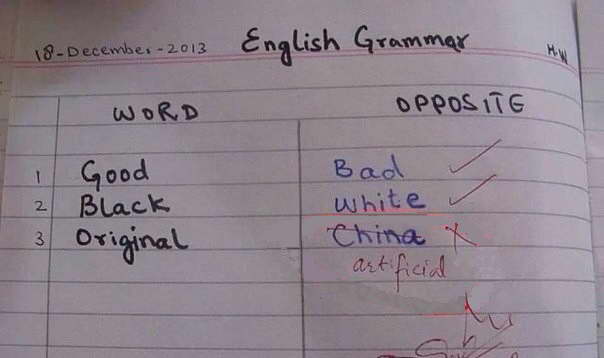 18-December-2013 English Grammar H.W
WORD OPPOSITE
1 Good Bad
2 Black White
3 Original China
artificial